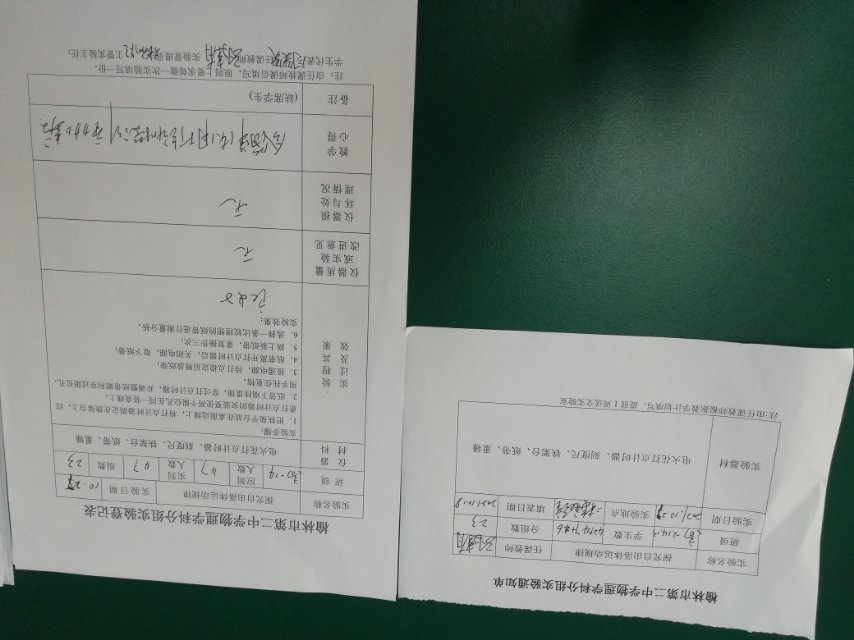 榆林市第二中学物理学科分组实验登记表
实验名称 探究自由落体运动规律 实验日期 10.29
班级 高一14 应到人数 47 实到人数 47 组数 23
仪器材料 电火花打点计时器、刻度尺、铁架台、纸带、重锤
实验过程及其效果
实验步骤：
1．把铁架台平台放在桌面边缘上，将打点计时器固定在铁架台上，注
意打点计时器的安装要使两个限位孔在同一竖直线上。
2．纸带下端挂重锤，穿过打点计时器，并调整
用手托住重物。
3．接通电源，待打点稳定后释放纸带。
4．纸带离开打点计时器后，关闭电源，取下纸带；
5．换上新纸带，重复操作三次；
6．选择一条比较理想的纸带进行测量分析。
实验效果：
仪器质量或实验改进意见 无
仪器损坏与处理情况 无
教学心得
备注 (缺席学生)
注：由任课教师课后填写，原则上要求每做一次实验填写一份。
学生代表 任课教师 实验管理员 主管实验主任：
榆林市第二中学物理学科分组实验通知单
实验名称 探究自由落体运动规律 任课教师
班级 学生数 分组数 23
实验日期 2021.10.29 实验地点 填表日期 2021.10.18
实验器材 电火花打点计时器、刻度尺、铁架台、纸带、重锤
注:由任课教师根据教学计划填写，提前 1 周送交实验室